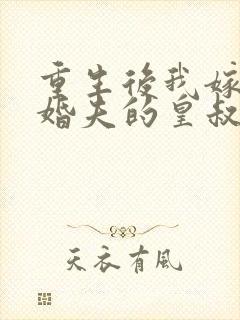 重生後我嫁
婚夫的皇叔
天衣有風